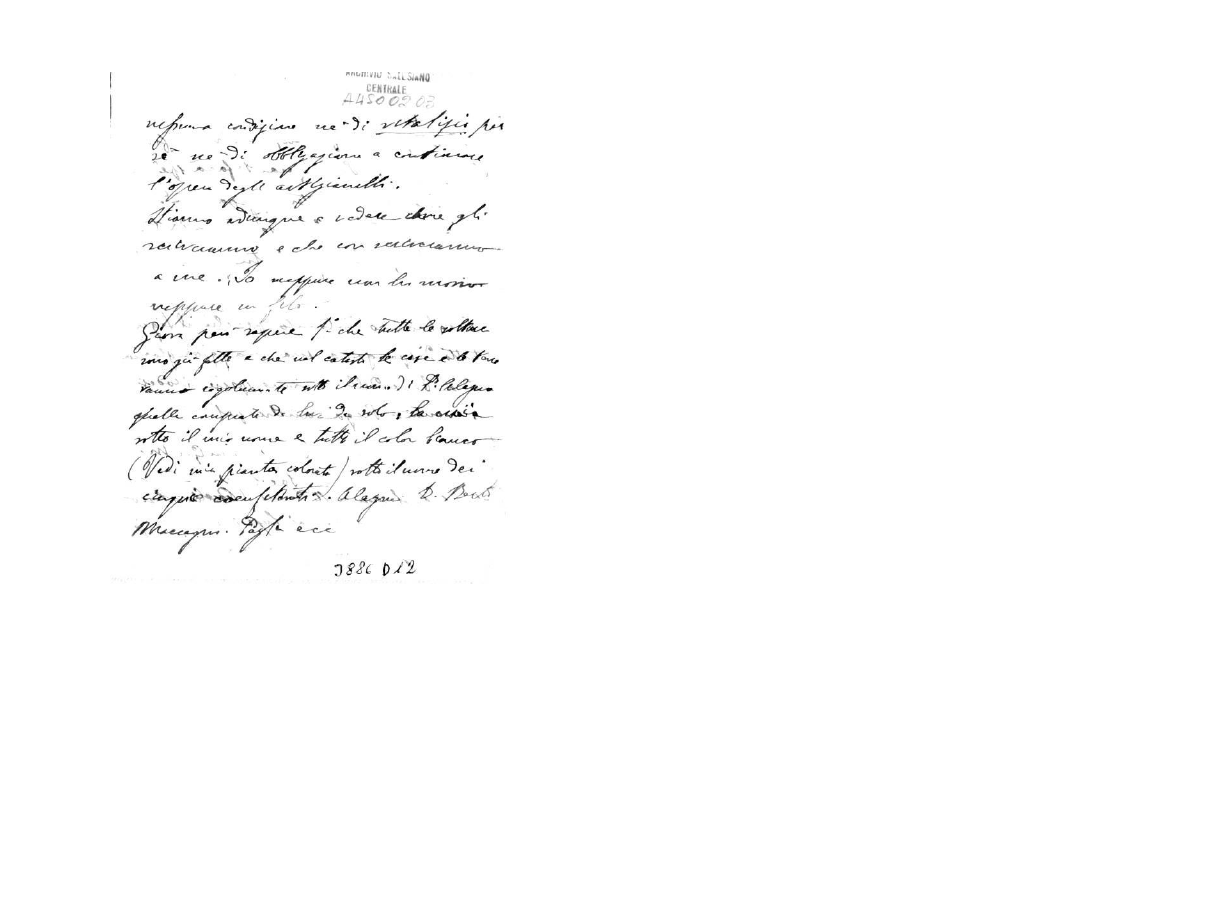 ARCHIVIO SALESIANO
CENTRALE
A4500203
nessuna condizione ne di vitalizio per
sè ne di obbligazione a continuare
l'opera degli artigianelli.
Stiamo adunque a vedere dove gli
scriveranno e che cosa scriveranno
a me. Io neppure non lo
neppure un filo.
Giova però sapere 1° che tutte le volture
sono già fatte e che nel catasto le case e le terre
vanno sotto il nome di D.
quelle comprate da lui da solo, la
sotto il mio nome e tutto il color bianco
(Vedi mia pianta colorata) sotto il nome dei
cinque D.
Maccagno. ecc
3886 D12